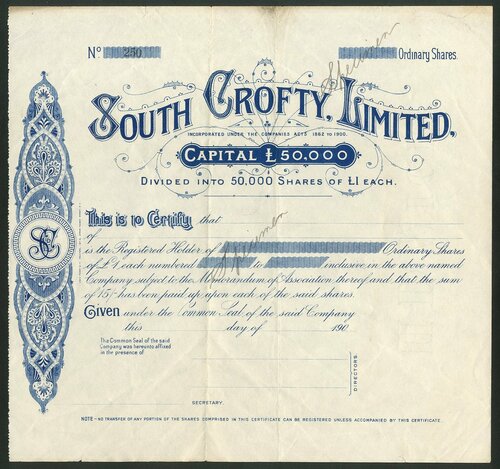 No 250 Ordinary Shares.
Specimen
SOUTH CROFTY, LIMITED.
INCORPORATED UNDER THE COMPANIES ACTS 1862 TO 1900.
CAPITAL £50,000
DIVIDED INTO 50,000 SHARES OF £1 EACH.
This is to Certify that
of
Specimen
is the Registered Holder of Ordinary Shares
of £1 each numbered to inclusive in the above named
Company subject to the Memorandum of Association thereof and that the sum
of 15/- has been paid up upon each of the said shares.
Given under the Common Seal of the said Company
this day of 190
The Common Seal of the said
Company was hereunto affixed
in the presence of
DIRECTORS.
SECRETARY.
SC
NOTE - NO TRANSFER OF ANY PORTION OF THE SHARES COMPRISED IN THIS CERTIFICATE CAN BE REGISTERED UNLESS ACCOMPANIED BY THIS CERTIFICATE.